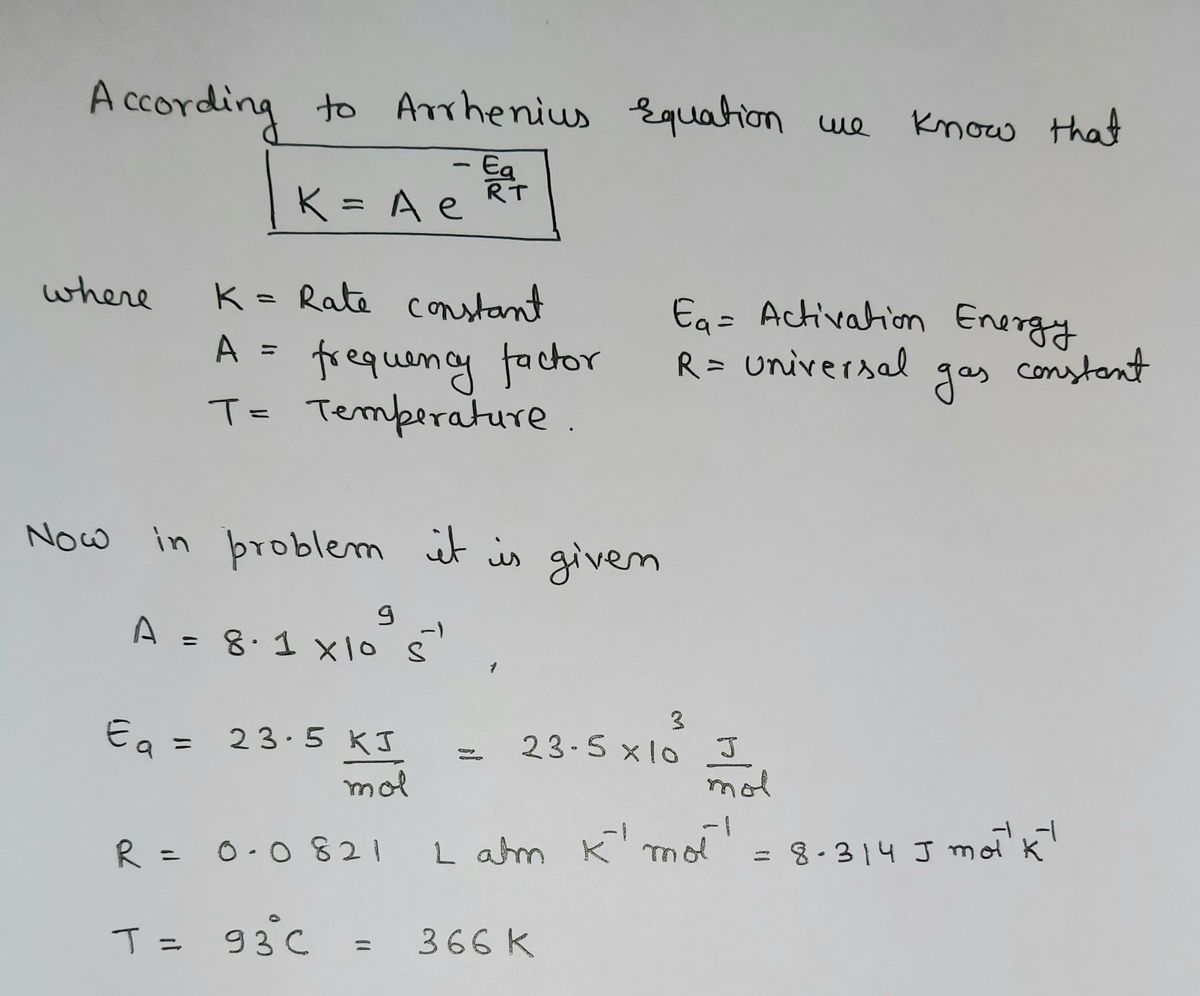 According to Arrhenius Equation we know that
K = A e^(-Ea/RT)
where K = Rate constant Ea = Activation Energy
A = frequency factor R = universal gas constant
T = Temperature.
Now in problem it is given
A = 8.1 x10⁹ s⁻¹,
Ea = 23.5 KJ/mol = 23.5 x10³ J/mol
R = 0.0821 L atm K⁻¹ mol⁻¹ = 8.314 J mol⁻¹ K⁻¹
T = 93°C = 366 K